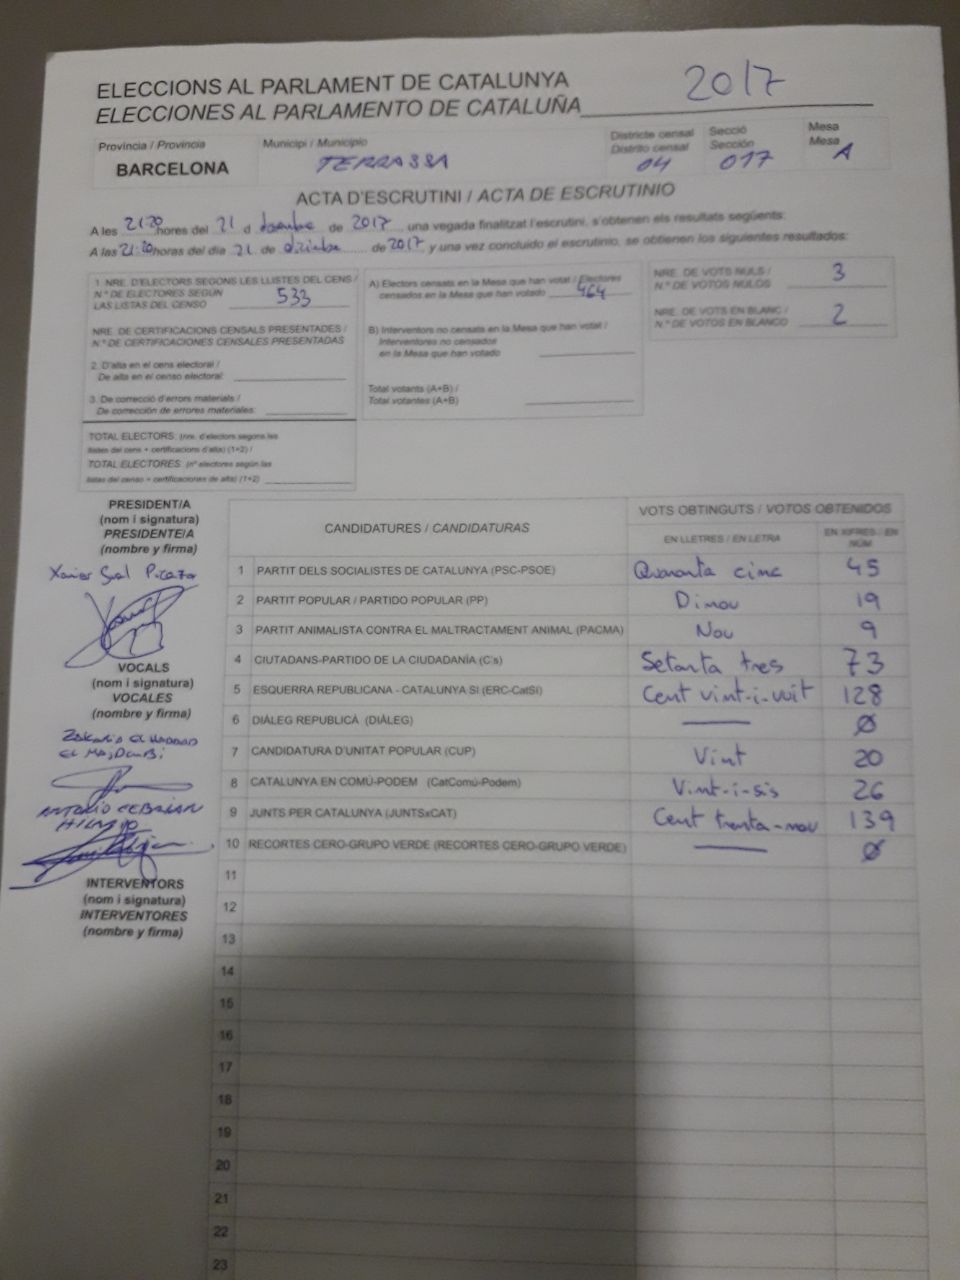 ELECCIONS AL PARLAMENT DE CATALUNYA
ELECCIONES AL PARLAMENTO DE CATALUÑA 2017
Província / Provincia
BARCELONA
Municipi / Municipio
TERRASSA
Districte censal
Distrito censal
04
Secció
Sección
017
Mesa
Mesa
A
ACTA D'ESCRUTINI / ACTA DE ESCRUTINIO
A les 21:20 hores del 21 d desembre de 2017 una vegada finalitzat l'escrutini, s'obtenen els resultats següents:
A las 21:20 horas del día 21 de diciembre de 2017 y una vez concluido el escrutinio, se obtienen los siguientes resultados:
1. NRE. D'ELECTORS SEGONS LES LLISTES DEL CENS /
N.º DE ELECTORES SEGÚN
LAS LISTAS DEL CENSO 533
NRE. DE CERTIFICACIONS CENSALS PRESENTADES /
N.º DE CERTIFICACIONES CENSALES PRESENTADAS
2. D'alta en el cens electoral /
De alta en el censo electoral:
3. De correcció d'errors materials /
De corrección de errores materiales:
TOTAL ELECTORS: (nre. d'electors segons les
llistes del cens + certificacions d'alta) (1+2) /
TOTAL ELECTORES: (nº electores según las
listas del censo + certificaciones de alta) (1+2)
A) Electors censats en la Mesa que han votat / Electores
censados en la Mesa que han votado 464
B) Interventors no censats en la Mesa que han votat /
Interventores no censados
en la Mesa que han votado
Total votants (A+B) /
Total votantes (A+B)
NRE. DE VOTS NULS /
N.º DE VOTOS NULOS 3
NRE. DE VOTS EN BLANC /
N.º DE VOTOS EN BLANCO 2
PRESIDENT/A
(nom i signatura)
PRESIDENTE/A
(nombre y firma)
Xavier
VOCALS
(nom i signatura)
VOCALES
(nombre y firma)
ANTONIO CEBRIAN
HILARIO
INTERVENTORS
(nom i signatura)
INTERVENTORES
(nombre y firma)
CANDIDATURES / CANDIDATURAS
VOTS OBTINGUTS / VOTOS OBTENIDOS
EN LLETRES / EN LETRA
EN XIFRES / EN NÚM
1 PARTIT DELS SOCIALISTES DE CATALUNYA (PSC-PSOE) Quaranta cinc 45
2 PARTIT POPULAR / PARTIDO POPULAR (PP) Dinou 19
3 PARTIT ANIMALISTA CONTRA EL MALTRACTAMENT ANIMAL (PACMA) Nou 9
4 CIUTADANS-PARTIDO DE LA CIUDADANÍA (C's) Setanta tres 73
5 ESQUERRA REPUBLICANA - CATALUNYA SÍ (ERC-CatSí) Cent vint-i-vuit 128
6 DIÀLEG REPUBLICÀ (DIÀLEG) Ø
7 CANDIDATURA D'UNITAT POPULAR (CUP) Vint 20
8 CATALUNYA EN COMÚ-PODEM (CatComú-Podem) Vint-i-sis 26
9 JUNTS PER CATALUNYA (JUNTSxCAT) Cent trenta-nou 139
10 RECORTES CERO-GRUPO VERDE (RECORTES CERO-GRUPO VERDE) Ø
11
12
13
14
15
16
17
18
19
20
21
22
23